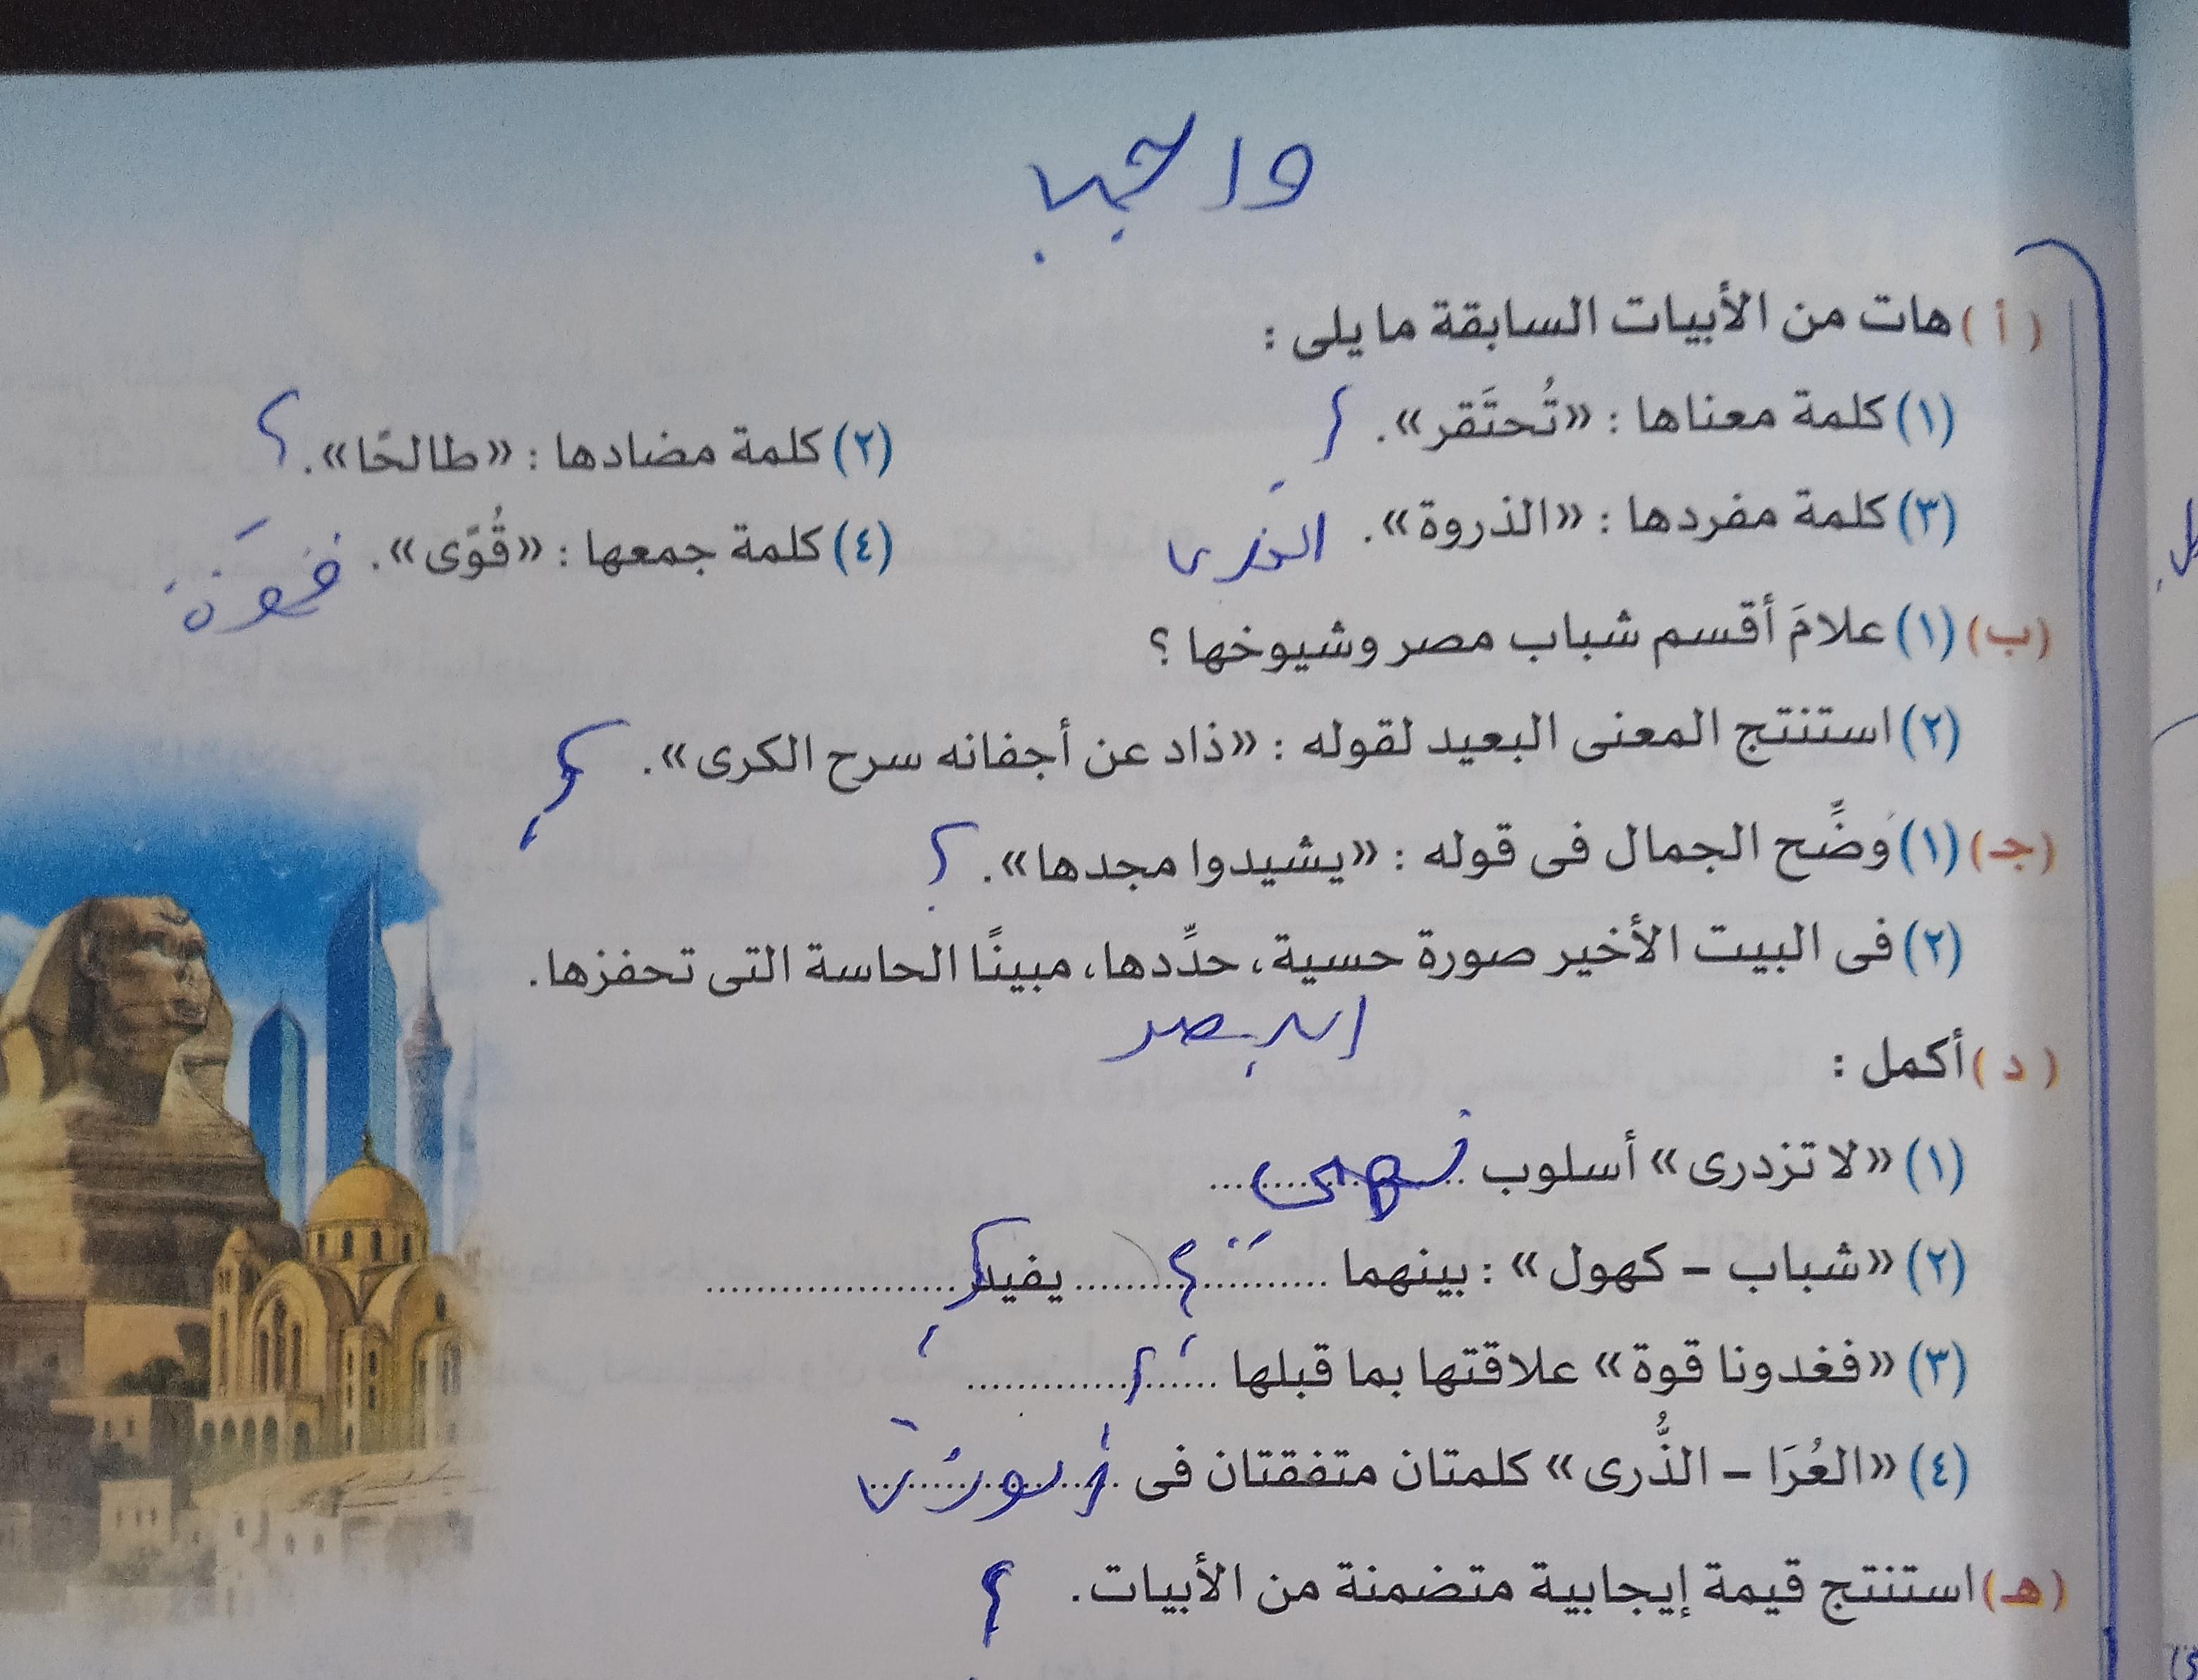 واجب
(أ) هات من الأبيات السابقة ما يلى :
(١) كلمة معناها : «تُحتَقر». ؟
(٢) كلمة مضادها : «طالحًا». ؟
(٣) كلمة مفردها : «الذروة». الذرى
(٤) كلمة جمعها : «قُوًى». قوة
(ب) (١) علامَ أقسم شباب مصر وشيوخها ؟
(٢) استنتج المعنى البعيد لقوله : «ذاد عن أجفانه سرح الكرى». ؟
(جـ) (١) وضِّح الجمال فى قوله : «يشيدوا مجدها». ؟
(٢) فى البيت الأخير صورة حسية، حدِّدها، مبينًا الحاسة التى تحفزها.
البصر
(د) أكمل :
(١) «لا تزدرى» أسلوب نهى
(٢) «شباب – كهول» : بينهما ........ ؟ ........ يفيد ........ ؟
(٣) «فغدونا قوة» علاقتها بما قبلها ........ ؟
(٤) «العُرَا – الذُّرى» كلمتان متفقتان فى ........
(هـ) استنتج قيمة إيجابية متضمنة من الأبيات. ؟